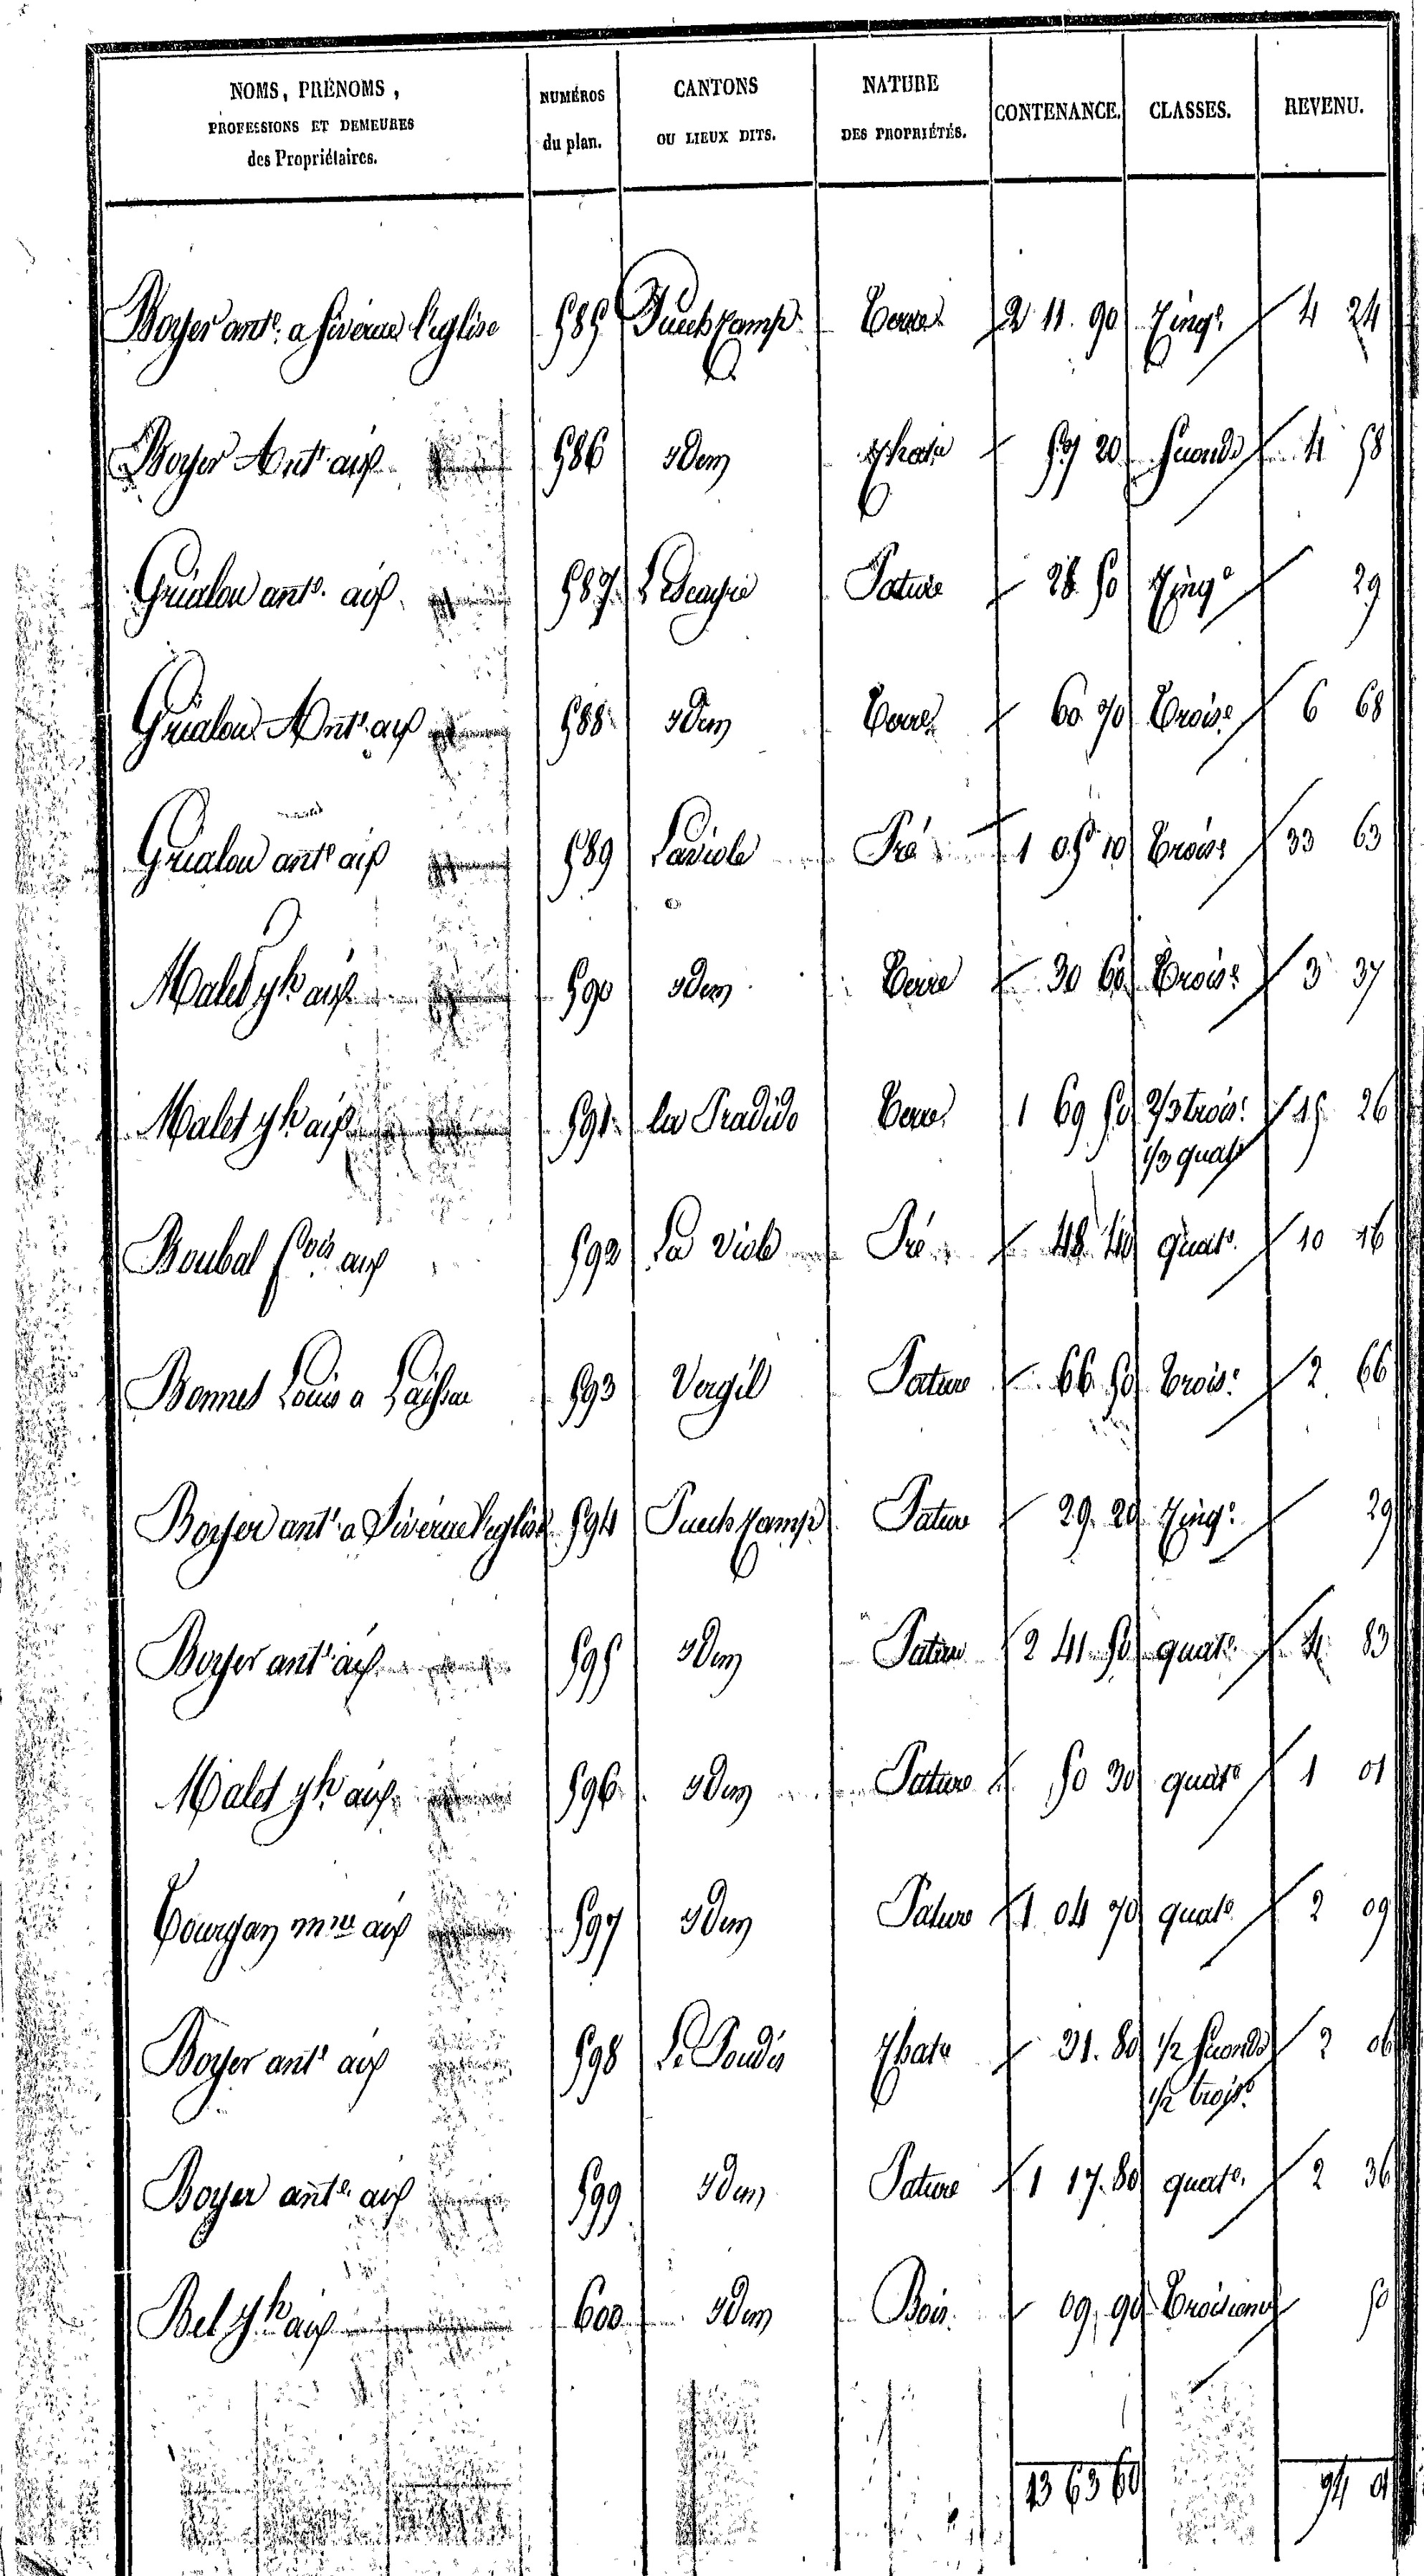 NOMS, PRÉNOMS, PROFESSIONS ET DEMEURES des Propriétaires. NUMÉROS du plan. CANTONS OU LIEUX DITS. NATURE DES PROPRIÉTÉS. CONTENANCE. CLASSES. REVENU.
Boyer ant.e a Sivérac l'eglise 585 Puech camp Terre 2 11. 90 Cinq.e 4 24
Boyer Ant.e aif 586 idem 57 20 seconde 4 58
Grialou ant.e aif 587. Pature 28. 50 Cinq.e 29
Grialou Ant.e aif 588 idem Terre 60 70 Trois.e 6 68
Grialou ant.e aif 589 Laviole Pré 1 05 10 Trois.e 33 63
Malet aif 590 idem Terre 30 60 Trois.e 3 37
Malet aif 591. la Pradido Terre 1 69 50 2/3 trois.e 15 26
1/3 quat.e
Boubal f.ois aif 592 La Viole Pré 48 40 quat.e 10 16
Bonnet Louis a Laissac 593 Vergil Pature 66 50 Trois.e 2 66
Boyer ant.e a Sivérac l'eglise 594 Puech camp Pature 29. 20 Cinq.e 29
Boyer ant.e aif 595 idem Pature 2 41. 50 quat.e 4 83
Malet aif 596 idem Pature 50 30 quat.e 1 01
aif 597 idem Pature 1 04 70 quat.e 2 09
Boyer ant.e aif 598 31. 80 1/2 seconde 2 06
1/2 trois.e
Boyer ant.e aif 599 idem Pature 1 17. 80 quat.e 2 36
Bel aif 600 idem Bois. 09, 90 Troisieme 50
13 63 60 94 01